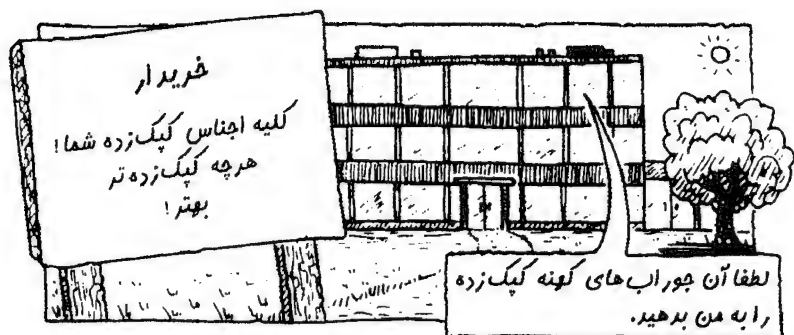 خریدار
کلیه اجناس کپک‌زده شما!
هرچه کپک‌زده‌تر
بهتر!
لطفا آن جوراب‌های کهنه کپک‌زده
را به من بدهید.